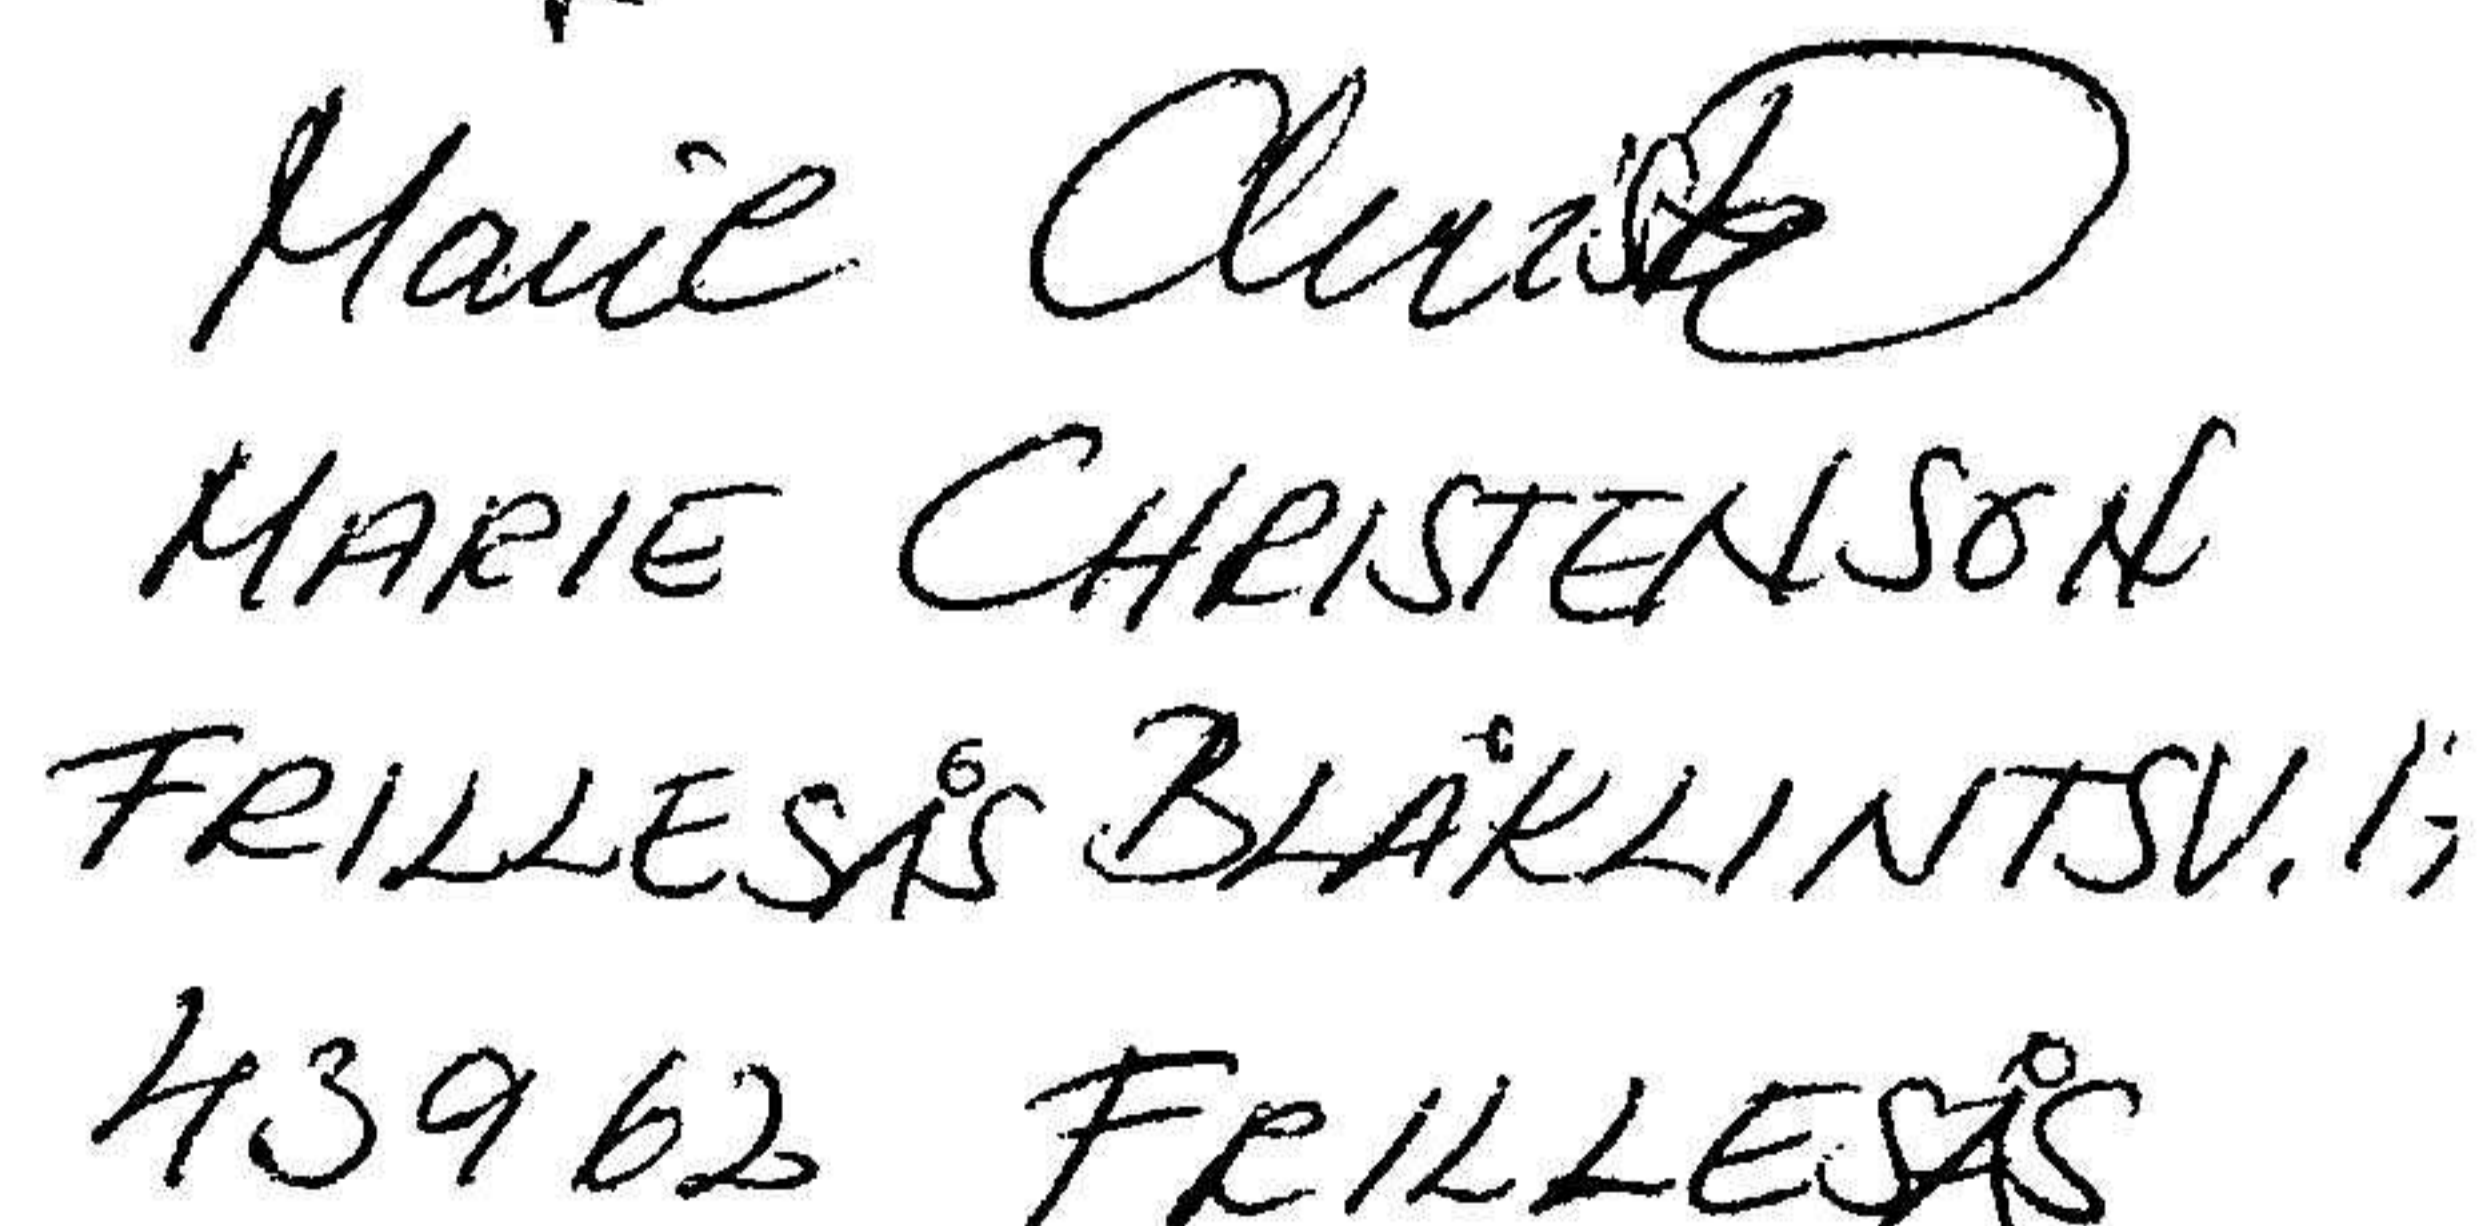 Marie Christe
MARIE CHRISTENSON
FRILLESÅS BLÅKLINTSV.
43962 FRILLESÅS